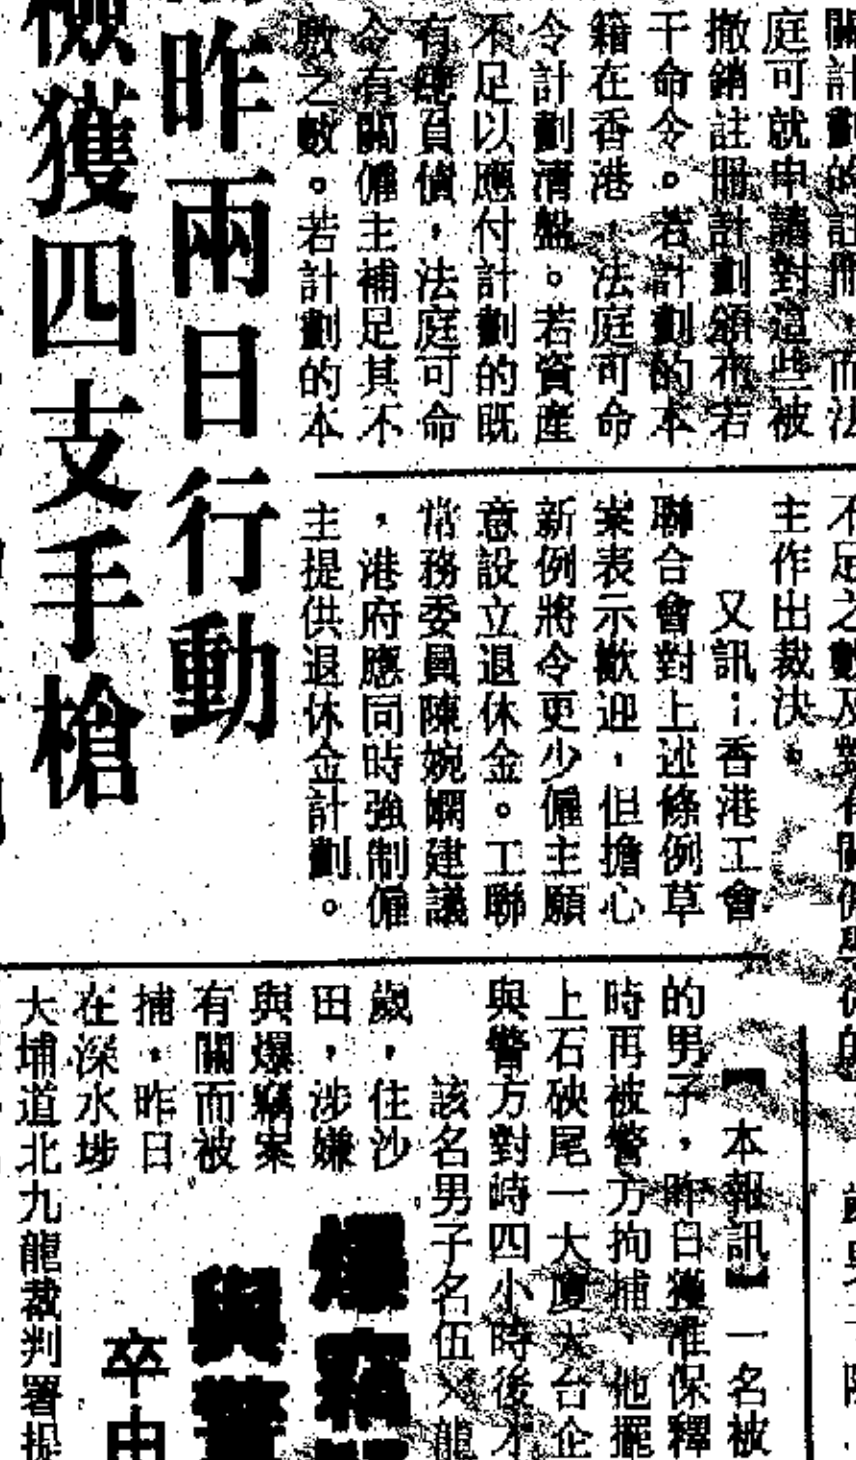 關計劃的註冊，而法
庭可就申請對這些被
撤銷註冊計劃頒布若
干命令。若計劃的本
籍在香港，法庭可命
令計劃清盤。若資產
不足以應付計劃的既
有總負債，法庭可命
令有關僱主補足其不
敷之數。若計劃的本
不足之數及對有關僱
主作出裁決。
又訊：香港工會
聯合會對上述條例草
案表示歡迎，但擔心
新例將令更少僱主願
意設立退休金。工聯
常務委員陳婉嫻建議
，港府應同時強制僱
主提供退休金計劃。
昨兩日行動
檢獲四支手槍
【本報訊】一名被
的男子，昨日獲准保釋
時再被警方拘捕，他擺
上石硤尾一大廈天台企
與警方對峙四小時後才
該名男子名伍×龍
歲，住沙
田，涉嫌
與爆竊案
有關而被
捕，昨日
在深水埗
大埔道北九龍裁判署提
爆竊
與警
卒由